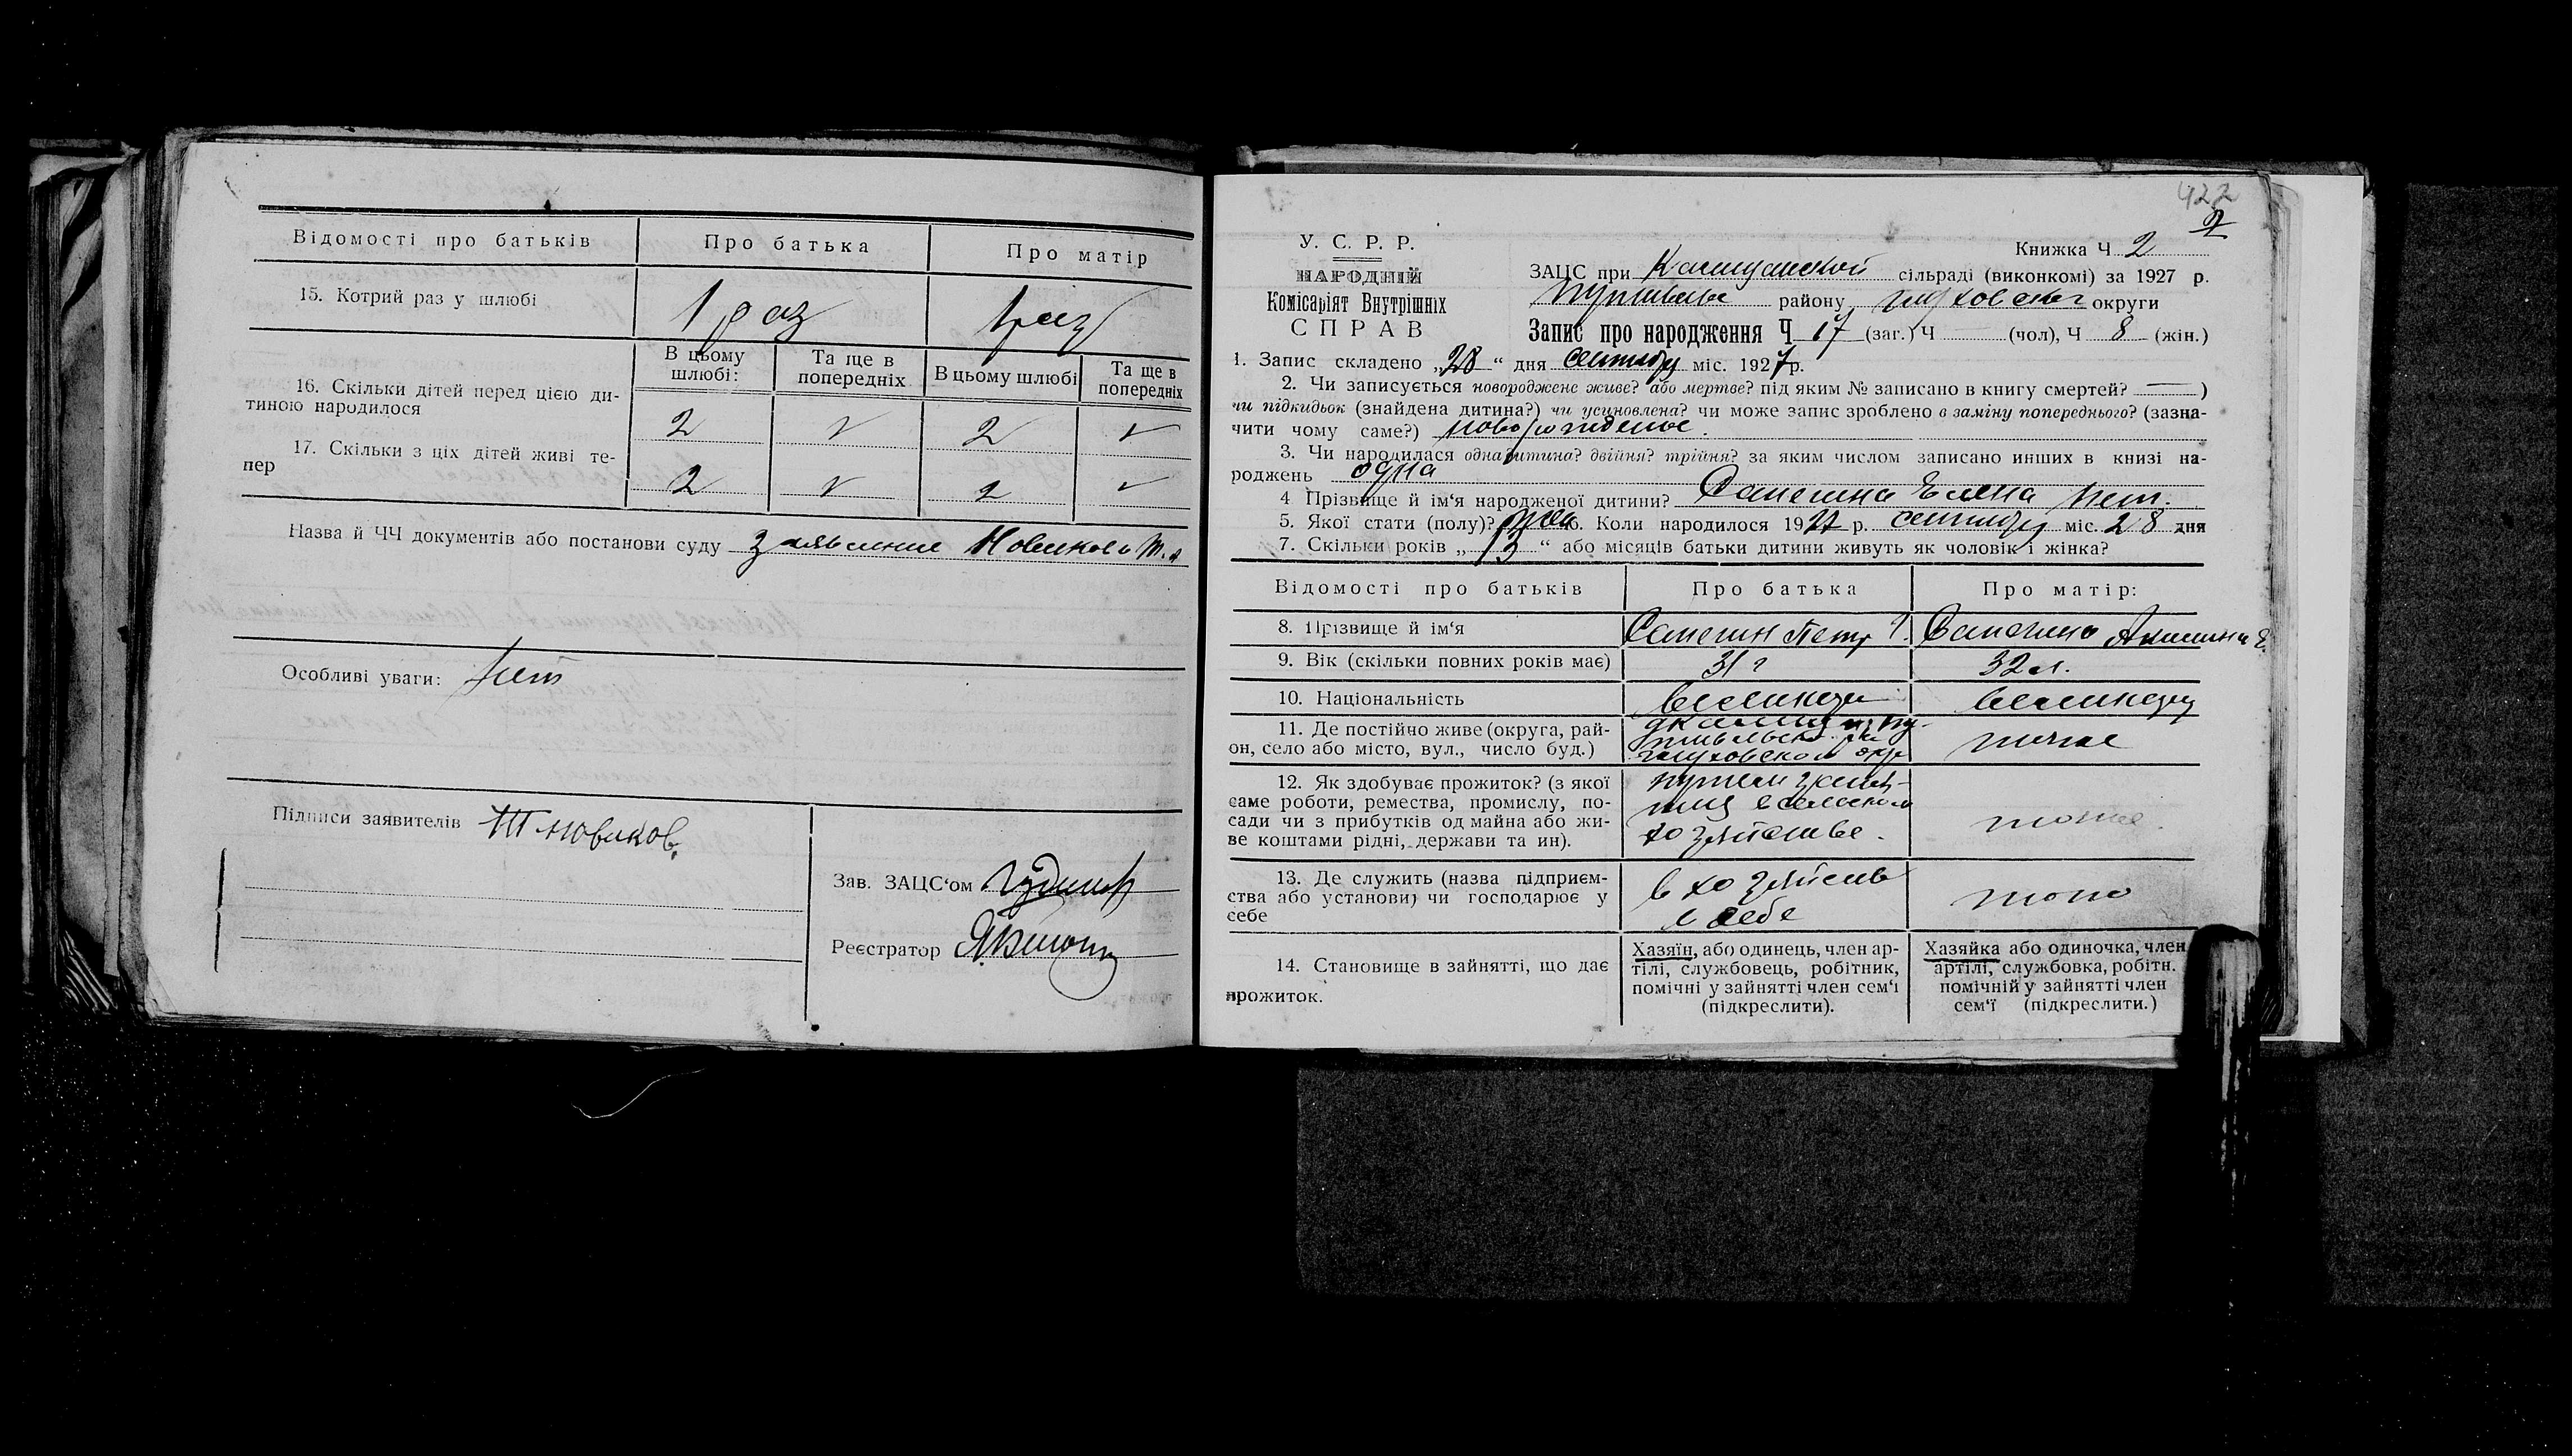 Відомості про батьків Про батька Про матір
15. Котрий раз у шлюбі 1 раз 1 раз
В цьому шлюбі: Та ще в попередніх В цьому шлюбі Та ще в попередніх
16. Скільки дітей перед цією ди-
тиною народилося 2 v 2 v
17. Скільки з ціх дітей живі те-
пер 2 v 2 v
Назва й ЧЧ документів або постанови суду заявление Новикова Т. А
Особливі уваги: нет
Підписи заявителів Т Новиков.
Зав. ЗАЦС‘ом
Реєстратор
422
2
У. С. Р. Р.
НАРОДНІЙ
Комісаріят Внутрішніх
СПРАВ
Книжка Ч 2
ЗАЦС при сільраді (виконкомі) за 1927 р.
району глуховской округи
Запис про народження Ч 17 (заг.) Ч — (чол), Ч 8 (жін.)
1. Запис складено „28“ дня сентября міс. 1927 р.
2. Чи записується новороджене живе? або мертве? під яким № записано в книгу смертей? —)
чи підкидьок (знайдена дитина?) чи усиновлена? чи може запис зроблено в заміну попереднього? (зазна-
чити чому саме?) новорожденое.
3. Чи народилася одна дитина? двійня? трійня? за яким числом записано инших в книзі на-
роджень одна
4 Прізвище й ім‘я народженої дитини? Елена Пет.
5. Якої стати (полу)? жен 6. Коли народилося 1927 р. сентября міс. 28 дня
7. Скільки років „13“ або місяців батьки дитини живуть як чоловік і жінка?
Відомості про батьків Про батька Про матір:
8. Прізвище й ім‘я Петр
9. Вік (скільки повних років має) 31 г 32 л.
10. Національність
11. Де постійно живе (округа, рай-
он, село або місто, вул., число буд.) глуховской окр тоже
12. Як здобуває прожиток? (з якої
саме роботи, ремества, промислу, по-
сади чи з прибутків од майна або жи-
ве коштами рідні, держави та ин). путем в сельском
хозяйстве. тоже
13. Де служить (назва підприєм-
ства або установи) чи господарює у
себе в хозяйстве
у себе тоже
14. Становище в зайнятті, що дає
прожиток.
Хазяїн, або одинець, член ар-
тілі, службовець, робітник,
помічні у зайнятті член сем‘ї
(підкреслити).
Хазяйка або одиночка, член
артілі, службовка, робітн.
помічній у зайнятті член
сем‘ї (підкреслити.)